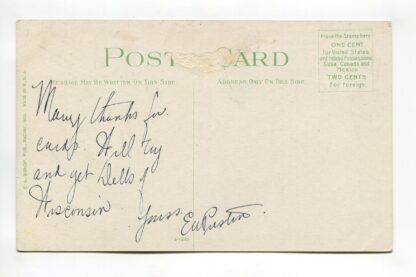 POST CARD
MESSAGE MAY BE WRITTEN ON THIS SIDE
ADDRESS ONLY ON THIS SIDE
Place the Stamp here
ONE CENT
for United States
and Island Possessions
Cuba, Canada and
Mexico
TWO CENTS
for Foreign.
Many thanks for
cards. Will try
and get Dells of
Wisconsin
Yours